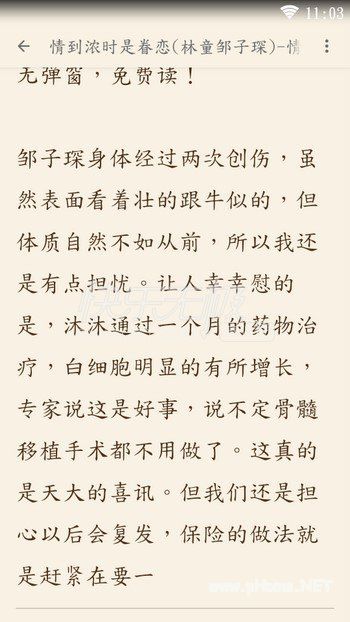 11:03
情到浓时是眷恋(林童邹子琛)-情
无弹窗，免费读！
邹子琛身体经过两次创伤，虽
然表面看着壮的跟牛似的，但
体质自然不如从前，所以我还
是有点担忧。让人幸幸慰的
是，沐沐通过一个月的药物治
疗，白细胞明显的有所增长，
专家说这是好事，说不定骨髓
移植手术都不用做了。这真的
是天大的喜讯。但我们还是担
心以后会复发，保险的做法就
是赶紧在要一